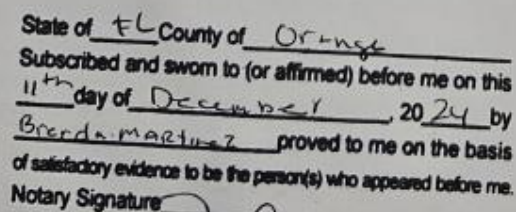 State of FL County of Orange
Subscribed and sworn to (or affirmed) before me on this
11th day of December, 2024 by
Brenda Martinez proved to me on the basis
of satisfactory evidence to be the person(s) who appeared before me.
Notary Signature